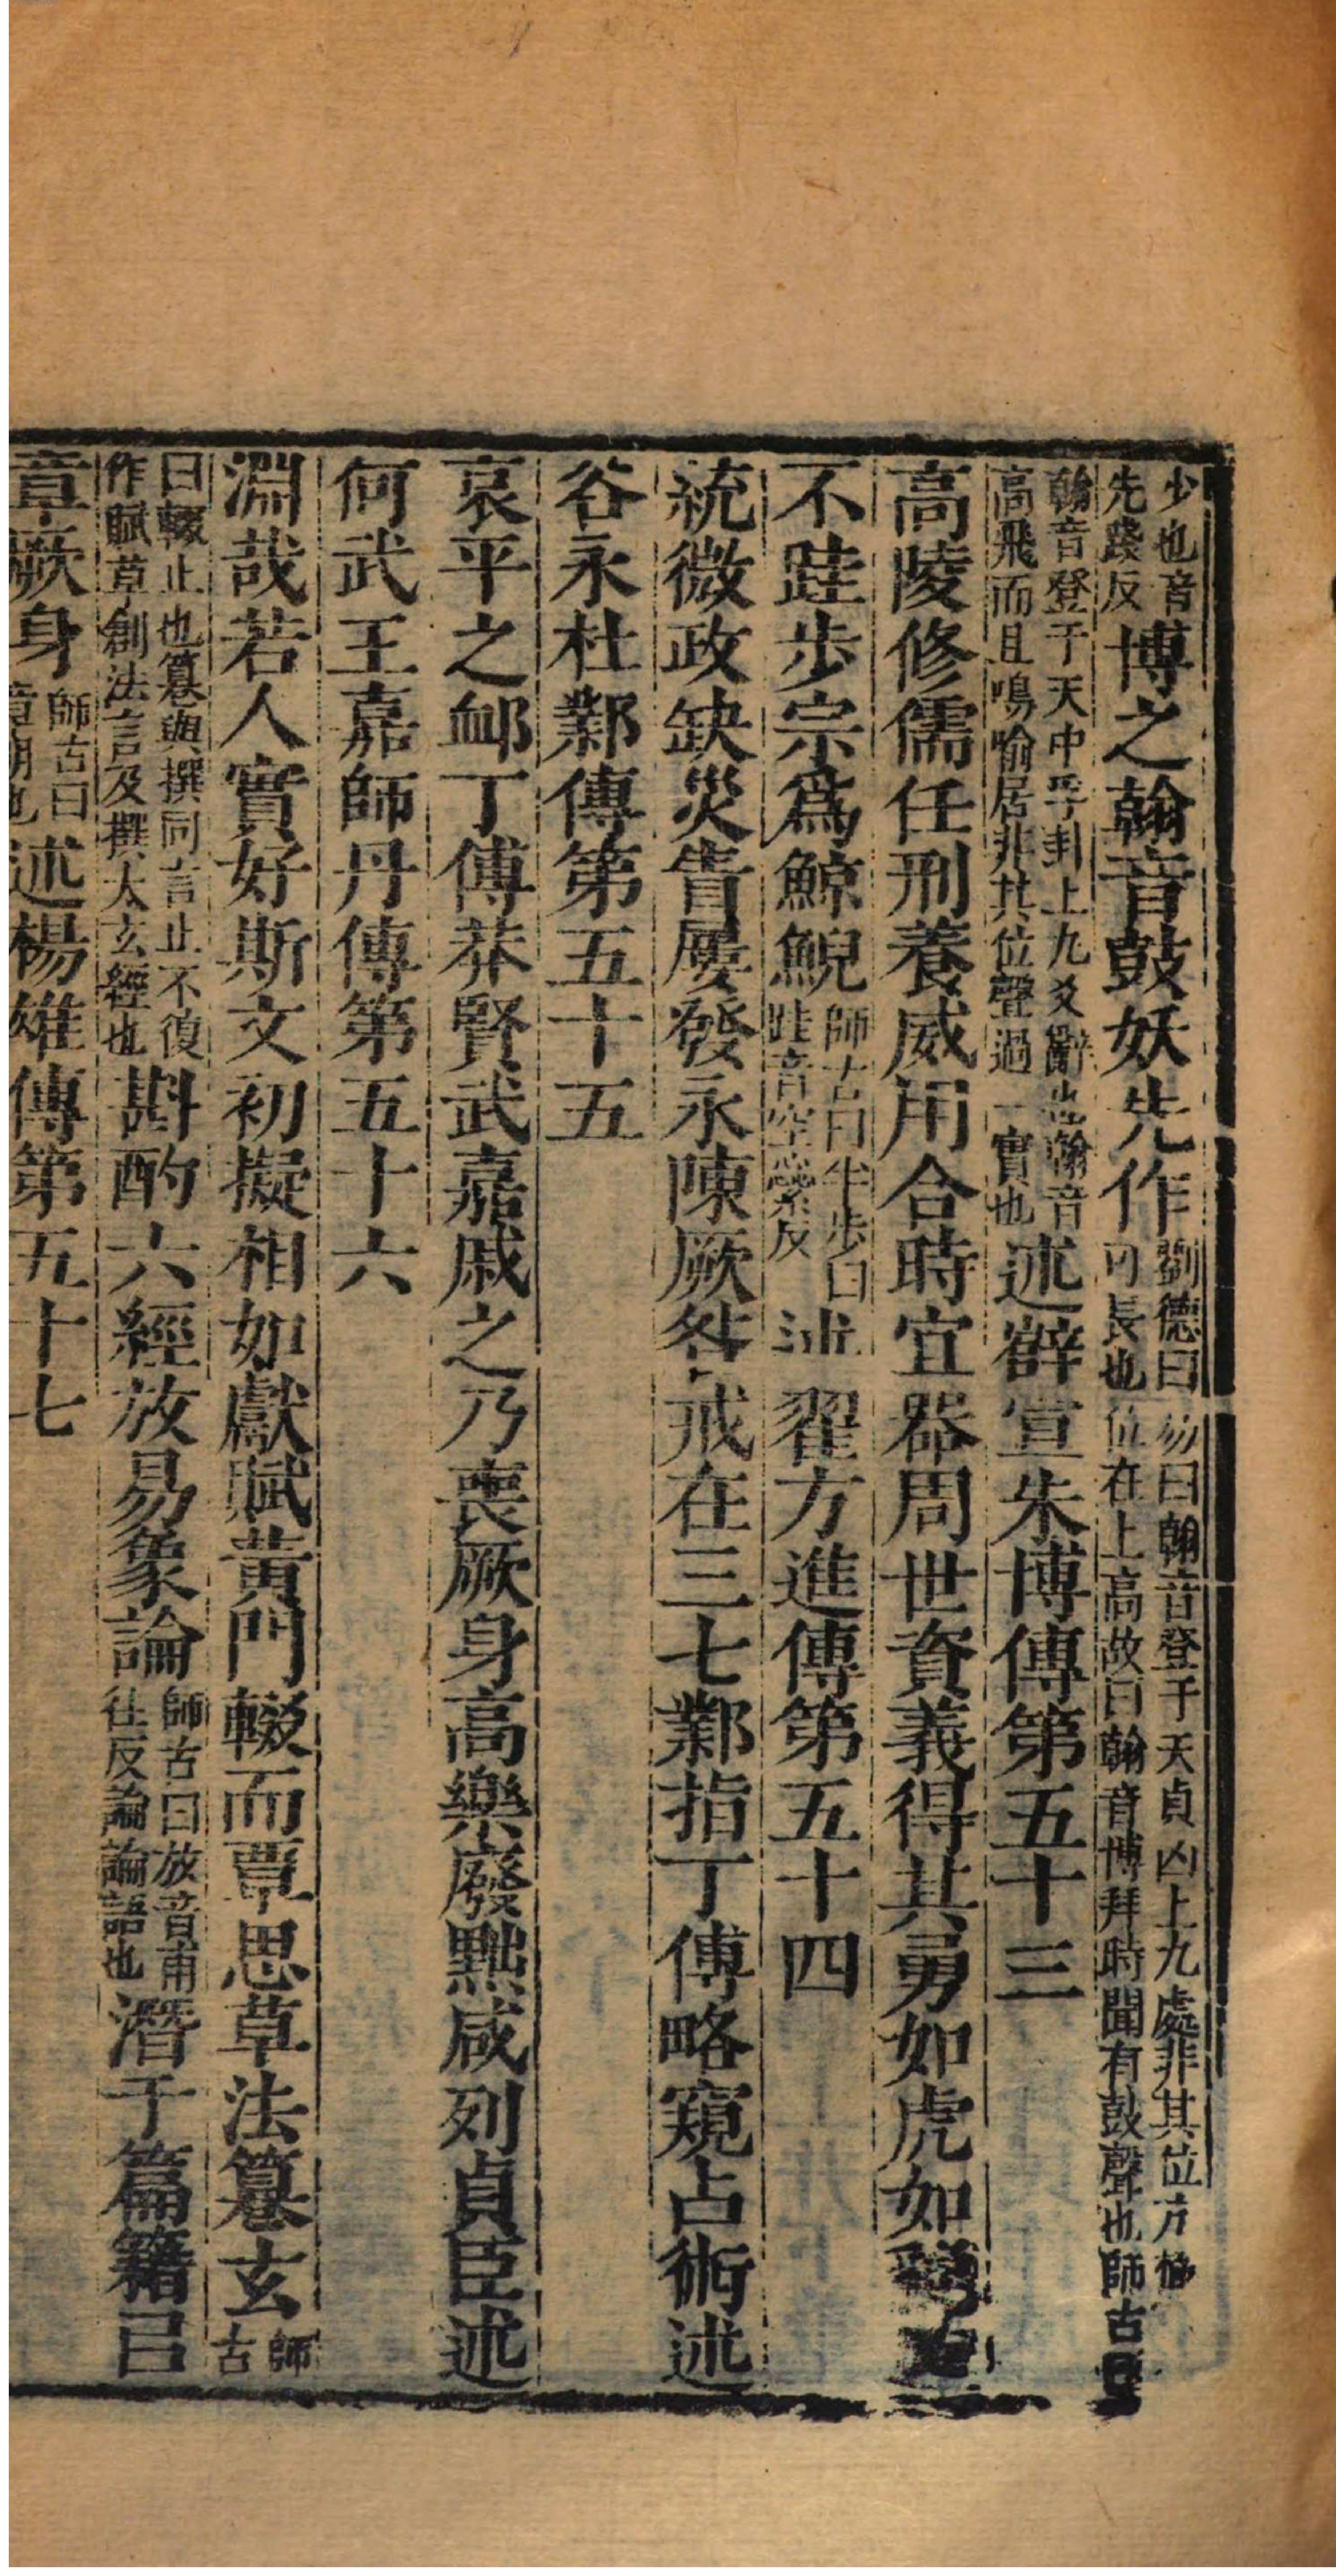 少也音先踐反博之翰音鼓妖先作劉德曰易曰翰音登于天貞凶上九處非其位亢極可長也位在上高故曰翰音博拜時聞有鼓聲也師古曰
翰音登于天中孚卦上九爻辭也翰音高飛而且鳴喻居非其位聲過一實也述薛宣朱博傳第五十三
高陵修儒任刑養威用合時宜器周世資義得其勇如虎如
不跬步宗為鯨鯢師古曰半步曰跬音空橤反述翟方進傳第五十四
統微政缺災眚屢發永陳厥咎戒在三七鄴指丁傅略窺占術述
谷永杜鄴傳第五十五
哀平之衈丁傅莽賢武嘉戚之乃喪厥身高樂廢黜咸列貞臣述
何武王嘉師丹傳第五十六
淵哉若人實好斯文初擬相如獻賦黃門輟而覃思草法篹玄師古
曰輟止也篹與撰同言止不復作賦草創法言及撰太玄經也斟酌六經放易象論師古曰放音甫往反論論語也潛于篇籍㠯
章厥身師古曰章明也述楊雄傳第五十七